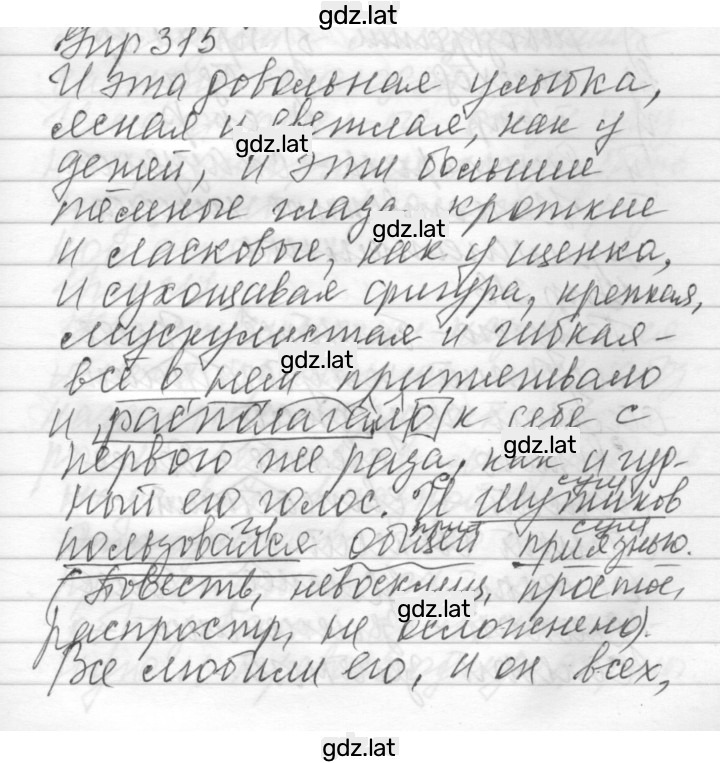 gdz.lat
Упр 315
И эта довольная улыбка,
ясная и светлая, как у
gdz.lat
детей, и эти большие
тёмные глаза, кроткие
gdz.lat
и ласковые, как у щенка,
и сухощавая фигура, крепкая,
мускулистая и гибкая-
gdz.lat
всё в нем притягивало
и располагало к себе с
gdz.lat
первого же раза, как и чуд-
сущ
ный его голос. И Шутиков
гл прил сущ
пользовался общей приязнью.
(Повеств, невосклиц, простое,
gdz.lat
распростр, не осложнено).
Все любили его, и он всех,
gdz.lat